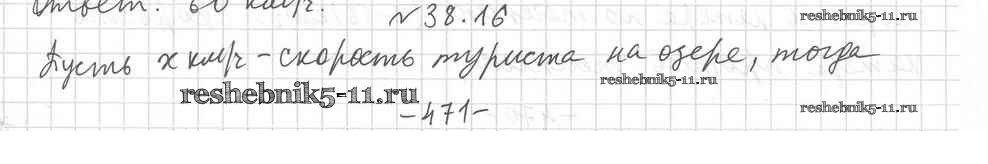 Ответ: 60 км/ч.
№38.16
reshebnik5-11.ru
Пусть x км/ч - скорость туриста на озере, тогда
reshebnik5-11.ru
reshebnik5-11.ru
-471-
reshebnik5-11.ru